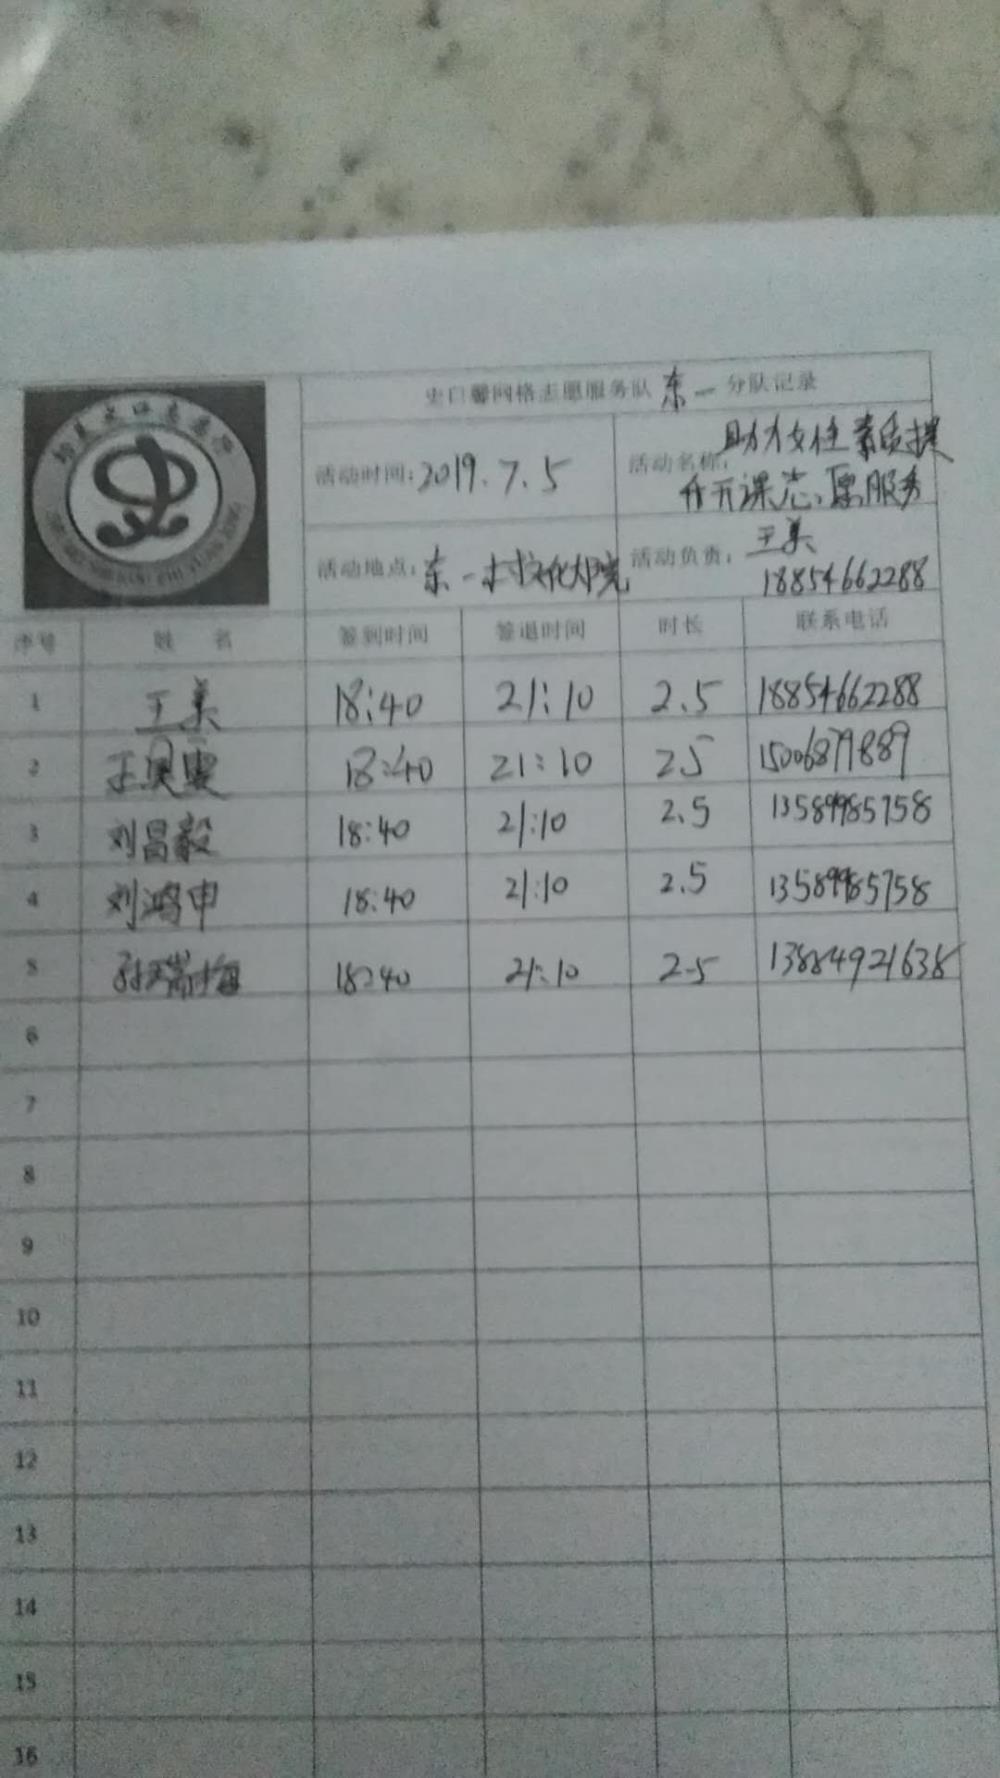 史口馨网格志愿服务队 东一 分队记录
活动时间: 2019.7.5
活动名称: 助力女性素质提
升开课志愿服务
活动地点: 东一村文化大院
活动负责: 王美
18854662288
序号 姓 名 签到时间 签退时间 时长 联系电话
1 王美 18:40 21:10 2.5 18854662288
2 18:40 21:10 2.5 15006879889
3 刘昌毅 18:40 21:10 2.5 13589985758
4 刘鸿申 18:40 21:10 2.5 13589985758
5 18:40 21:10 2.5 13884921638
6
7
8
9
10
11
12
13
14
15
16